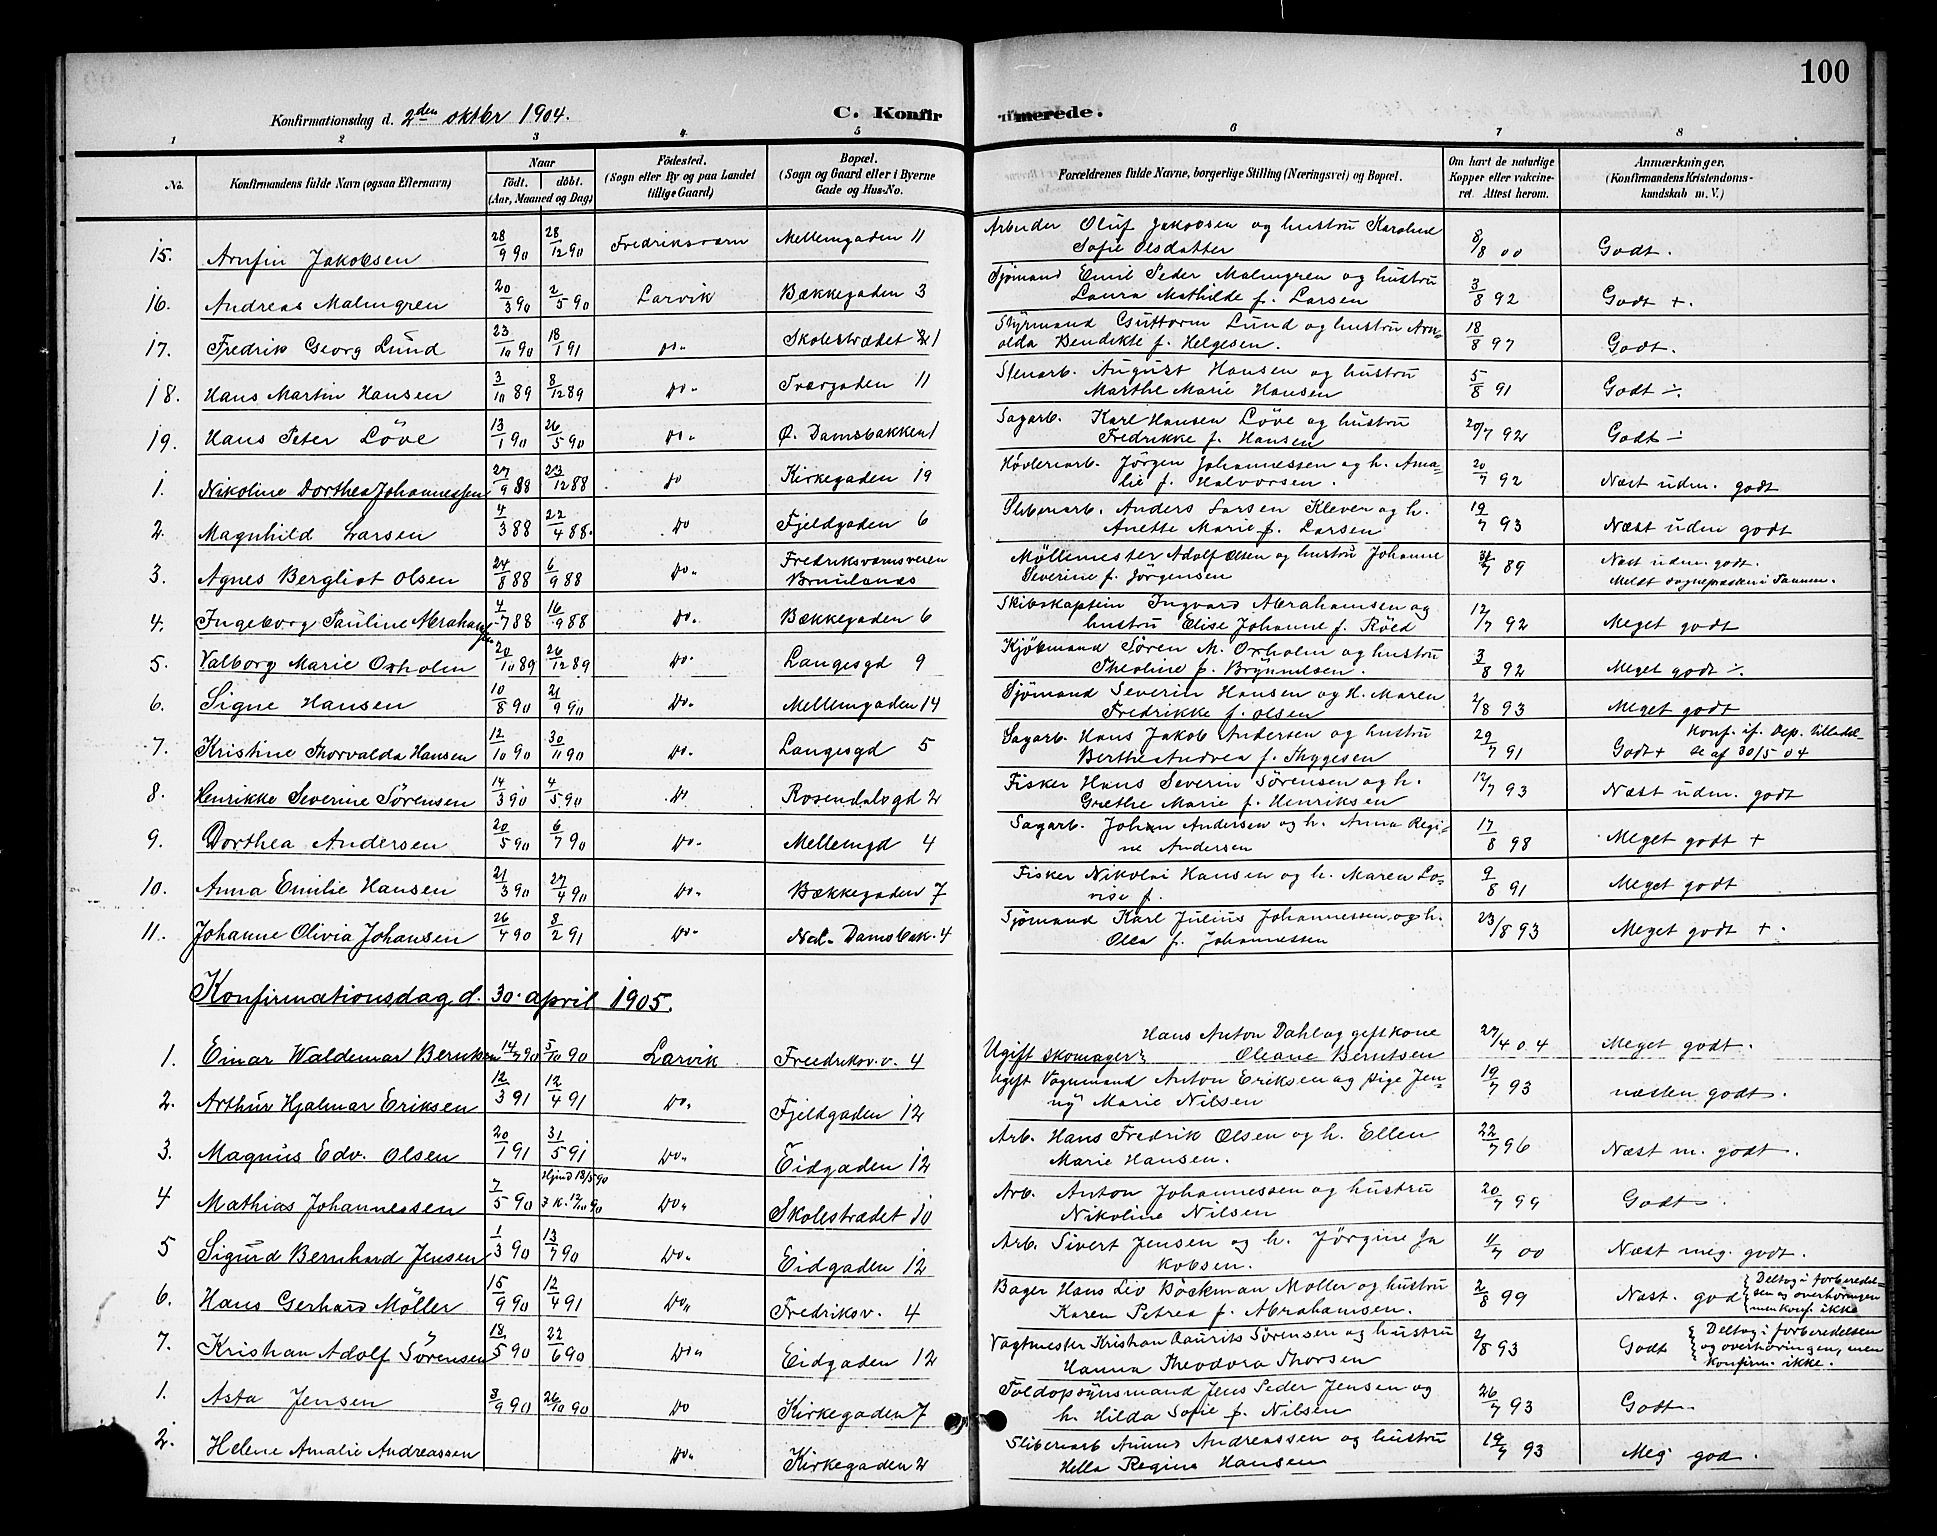 100
Konfirmationsdag d. 2den oktbr 1904.
C. Konfirmerede.
1 2 3 4 5 6 7 8
No. | Konfirmandens fulde Navn (ogsaa Efternavn) | Naar født. døbt. (Aar, Maaned og Dag) | Fødested. (Sogn eller By og paa Landet tillige Gaard) | Bopæl. (Sogn og Gaard eller i Byerne Gade og Hus-No. | Forældrenes fulde Navne, borgerlige Stilling (Næringsvei) og Bopæl. | Om havt de naturlige Kopper eller vaccineret. Attest herom. | Anmærkninger. (Konfirmandens Kristendomskundskab m. V.)
15. Arnfin Jakobsen 28/9 90 28/12 90 Fredriksværn Mellemgaden 11 Arbeider Oluf Jakobsen og hustru Sofie Olsdatter 8/8 00 Godt.
16. Andreas Malmgren 20/3 90 2/5 90 Larvik Bækkegaden 3 Sjømand Emil Peder Malmgren og hustru Laura Mathilde f. Larsen 3/8 92 Godt +.
17. Fredrik Georg Lund 23/10 90 18/1 91 Do. Skolestrædet 21 Styrmand Guttorm Lund og hustru Arnolda Bendikte f. Helgesen. 18/8 97 Godt.
18. Hans Martin Hansen 3/10 89 8/12 89 Do. Tvergaden 11 Stenarb. August Hansen og hustru Marthe Marie Hansen 5/8 91 Godt ÷.
19. Hans Peter Løve 13/1 90 26/5 90 Do. Ø. Damsbakken 1 Sagarb. Karl Hansen Løve og hustru Fredrikke f. Hansen 20/7 92 Godt ÷
1. Nikoline Dorthea Johannessen 27/9 88 23/12 88 Do Kirkegaden 19 Høvleriarb. Jørgen Johannessen og h. Amalie f. Halvorsen. 20/7 92 Næst udm. godt
2. Magnhild Larsen 4/3 88 22/4 88. Do Fjeldgaden 6 Sliberiarb. Anders Larsen Klever og h. Anette Marie f. Larsen 19/7 93 Næst udm godt
3. Agnes Bergliot Olsen 24/8 88 6/9 88 Do. Fredriksværnsveien Brunlanes Møllemester Adolf Olsen og hustru Johanne Severine f. Jørgensen 31/7 89 Næst udm. godt. Meldt sognepræsten i Tanum.
4. Ingeborg Pauline Abrahamsen 4/7 88 16/9 88 Do. Bækkegaden 6 Skibskaptein Ingvard Abrahamsen og hustru Elise Johanne f. Røed 12/7 92 Meget godt
5. Valborg Marie Oxholm 20/10 89 26/12 89 Do. Langesgd 9 Kjøbmand Søren M. Oxholm og hustru Theoline f. Brynnelsen. 3/8 92 Meget godt ÷.
6. Signe Hansen 10/8 90 21/9 90 Do. Mellemgaden 14 Sjømand Severin Hansen og H. Maren Fredrikke f. Olsen 2/8 93 Meget godt
7. Kristine Thorvalda Hansen 12/10 90 30/11 90 Do. Langesgd 5 Sagarb. Hans Jakob Andersen og hustru Berthe Andrea f. Thygesen 29/7 91 Godt + Konf. if. Dep. tilladelse af 30/5 04
8. Henrikke Severine Sørensen 14/3 90 4/5 90 Do Rosendalsgd 2 Fisker Hans Severin Sørensen og h. Grethe Marie f. Henriksen 12/7 93 Næst udm. godt
9. Dorthea Andersen 20/5 90 6/7 90 Do. Mellemgd 4 Sagarb. Johan Andersen og h. Anna Regine Andersen 17/8 98 Meget godt +
10. Anna Emilie Hansen 21/3 90 27/4 90 Do. Bækkegaden 7 Fisker Nikolai Hansen og h. Maren Lovise f. 9/8 91 Meget godt
11. Johanne Olivia Johansen 26/4 90 8/2 91 Do. Nol. Damsbak. 4 Sjømand Karl Julius Johannessen og h. Olea f. Johannessen 23/8 93 Meget godt +.
Konfirmationsdag d. 30. april 1905.
1. Einar Waldemar Berntsen 14/7 90 5/10 90 Larvik Fredriksv.v. 4 Ugift skomager Hans Anton Dahl og gift kone Oleane Berntsen 27/4 04 Meget godt.
2. Arthur Hjalmar Eriksen 12/3 91 12/4 91 Do. Fjeldgaden 12 Ugift Vognmand Anton Eriksen og pige Jenny Marie Nilsen 19/7 93 næsten godt.
3. Magnus Edv. Olsen 20/1 91 31/5 91 Do. Eidgaden 12 Arb. Hans Fredrik Olsen og h. Ellen Marie Hansen. 22/7 96 Næst m. godt.
4 Mathias Johannessen 7/5 90 Hjmd 18/5 90 I K. 12/10 90 Do. Skolestrædet 10 Arb. Anton Johannessen og hustru Nikoline Nilsen 20/7 99 Godt.
5 Sigurd Bernhard Jensen 1/3 90 13/7 90 Do. Eidgaden 12 Arb. Sivert Jensen og h. Jørgine Jakobsen. 4/7 00 Næst meg. godt.
6. Hans Gerhard Møller 15/9 90 12/4 91 Do. Fredriksv. 4 Bager Hans Liv Bøckman Møller og hustru Karen Petrea f. Abrahamsen. 2/8 99 Næst. god Deltog i forberedelsen og overhøringen men konf. ikke
7. Kristian Adolf Sørensen 18/5 90 22/6 90 Do. Eidgaden 12 Vagtmester Kristian Laurits Sørensen og hustru Hanna Theodora Thorsen 2/8 93 Godt Deltog i forberedelsen og overhøringen, men konfirm. ikke.
1. Asta Jensen 3/9 90 26/10 90 Do Kirkegaden 7 Toldopsynsmand Jens Peder Jensen og h. Hilda Sofie f. Nilsen 26/7 93 Godt.
2. Helene Amalie Andreassen Do. Kirkegaden 2 Sliberiarb Andreassen og hustru Hella Regine Hansen 19/7 93 Meg god.